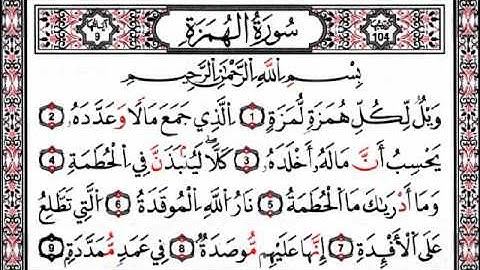 سُورَةُ الْهُمَزَةِ
ترتيبها 104
آياتها 9
بِسْمِ اللَّهِ الرَّحْمَٰنِ الرَّحِيمِ
وَيْلٌ لِّكُلِّ هُمَزَةٍ لُّمَزَةٍ ١ الَّذِي جَمَعَ مَالًا وَعَدَّدَهُ ٢
يَحْسَبُ أَنَّ مَالَهُ أَخْلَدَهُ ٣ كَلَّا لَيُنْبَذَنَّ فِي الْحُطَمَةِ ٤
وَمَا أَدْرَاكَ مَا الْحُطَمَةُ ٥ نَارُ اللَّهِ الْمُوقَدَةُ ٦ الَّتِي تَطَّلِعُ
عَلَى الْأَفْئِدَةِ ٧ إِنَّهَا عَلَيْهِم مُّوصَدَةٌ ٨ فِي عَمَدٍ مُّمَدَّدَةٍ ٩